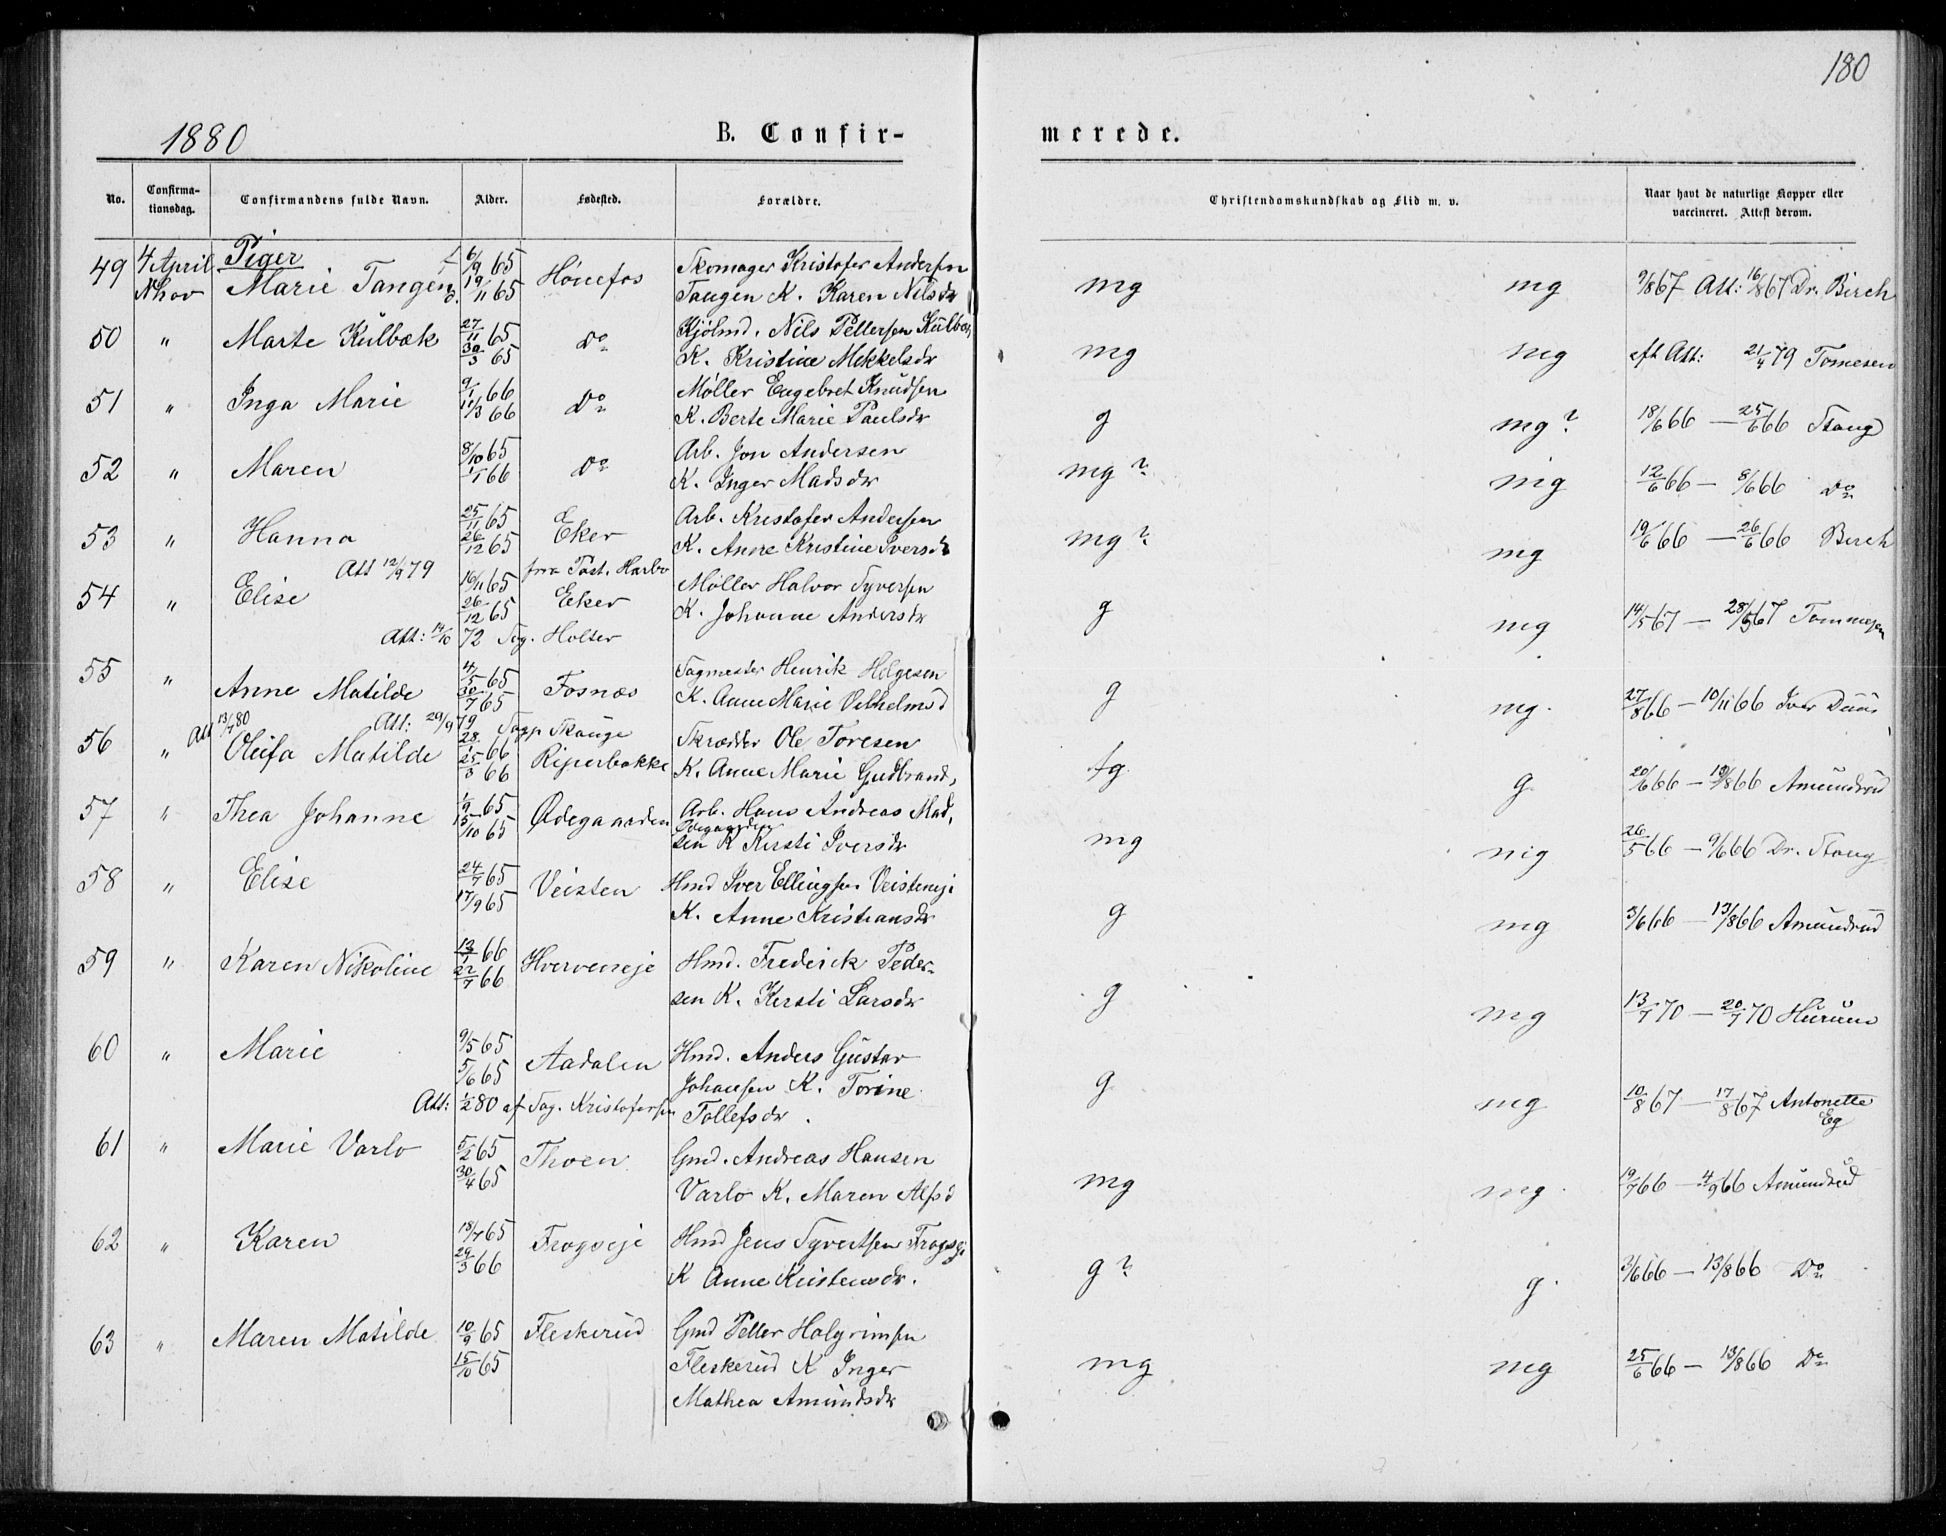 180
1880 B. Confir- merede.
No. Confirma-tionsdag. Confirmandens fulde Navn. Alder. Fødested. Forældre. Christendomskundskab og Flid m. v. Naar havt de naturlige Kopper eller vaccineret. Attest derom.
Piger
49 4 April Nhov Marie Tangen f. 6/9 65 d. 19/11 65 Hønefos Skomager Kristofer Andersen
Tangen K. Karen Nilsdr mg mg 9/8 67 Att: 16/8 67 Dr. Birch
50 " Marte Kulbæk 27/11 65 30/3 65 Do Kjølmd. Nils Pettersen Kulbæk
K. Kristine Mikkelsdr mg mg eft Att: 21/4 79 Tomesen
51 " Inga Marie 9/1 66 11/3 66 Do Møller Engebret Knudsen
K. Berte Marie Paulsdr g mg? 18/6 66 — 25/6 66 Stang
52 " Maren 8/10 65 1/1 66 Do Arb. Jon Andersen
K. Inger Madsdr mg? mg 12/6 66 — 8/6 66 Do
53 " Hanna 25/11 65 26/12 65 Eker Arb. Kristofer Andersen
K. Anne Kristine Iversdr mg? mg 19/6 66 — 26/6 66 Birch
Att 12/9 79 fra Past. Harbo
54 " Elise 16/11 65 26/12 65 Eker Møller Halvor Syversen
K. Johanne Andersdr g mg 14/5 67 — 28/5 67 Tommesen
Att: 14/10 72 Sog. Holter
55 " Anne Matilde 4/5 65 30/7 65 Fosnæs Sagmester Henrik Helgesen
K. Anne Marie Vilhelmsd g mg. 27/8 66 — 10/11 66 Iver
Att: 29/9 79 Sogp. Skauge
56 " Att 13/7 80 Oleifa Matilde 28/1 66 25/3 66 Riperbakke Skrædder Ole Toresen
K. Anne Marie Gudbrand, tg. g. 20/6 66 — 13/8 66 Amundrud
57 " Thea Johanne 1/9 65 15/10 65 Ødegaarden Arb. Hans Andreas Mad,
Ødegaarden
sen K Kersti Iversdr mg mg 26/5 66 — 9/6 66 Dr. Stang
58 " Elise 24/7 65 17/9 65 Veisten Hmd Iver Ellingsen Veisteneje
K. Anne Kristiansdr g mg 3/6 66 — 13/8 66 Amundrud
59 " Karen Nikoline 13/1 66 22/7 66 Hverveneje Hmd. Frederick Peder-
sen K. Kersti Larsdr g mg 13/7 70 — 20/7 70 Hurum
60 " Marie 9/5 65 5/6 65 Aadalen Hmd. Anders Gustav
Johansen K. Torine
Tollefsdr. g mg 10/8 67 — 17/8 67 Antonette Eg
Att: 1/2 80 af Sog. Kristofersen
61 " Marie Varlo 5/2 65 30/4 65 Thoen Gmd. Andreas Hansen
Varlo K. Maren Alfsd mg mg. 19/7 66 — 4/9 66 Amundrud
62 " Karen 18/7 65 29/3 66 Frogseje Hmd Jens Syvertsen Frogseje
K Anne Kristensdr. g? g. 3/6 66 — 13/8 66 Do
63 " Maren Matilde 10/9 65 15/10 65 Fleskerud Gmd Petter Halgrimsen
Fleskerud K Inger
Mathea Amundsdr mg mg 25/6 66 — 13/8 66 Do